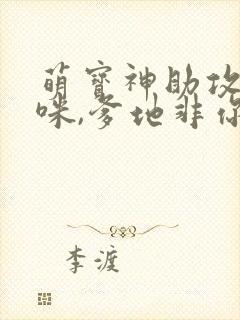 萌宝神助攻
咪,爹地非你
李渡